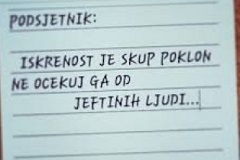 PODSJETNIK:
ISKRENOST JE SKUP POKLON
NE OCEKUJ GA OD
JEFTINIH LJUDI...